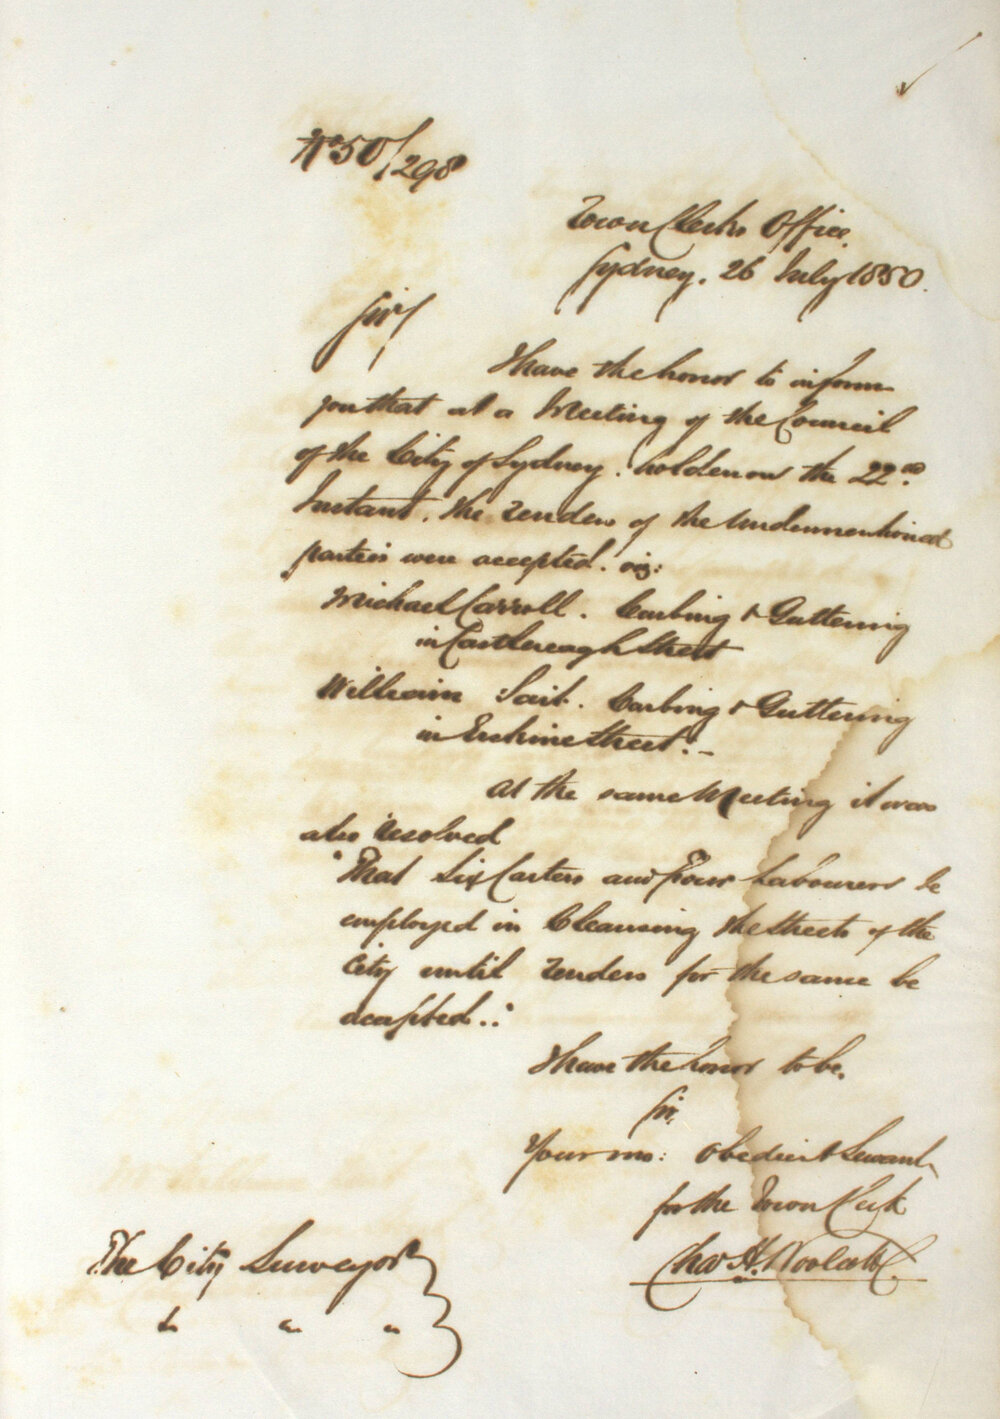 No 50/298
Town Clerks Office.
Sydney. 26 July 1850.
Sir/
I have the honor to inform
you that at a Meeting of the Council
of the City of Sydney. holden on the 22nd.
Instant, the Tenders of the Undermentioned
parties were accepted. viz:
Michael Carroll. Curbing & Guttering
in Castlereagh Street
William Tait. Curbing & Guttering
in Erskine Street. -
At the same Meeting it was
also resolved
"That Six Carters and Four Labourers be
employed in Cleansing the Streets of the
City until Tenders for the same be
accepted.."
I have the honor to be.
Sir,
Your mo: Obedient Servant
for the Town Clerk
Chas H. Woolcott
The City Surveyor
" " "